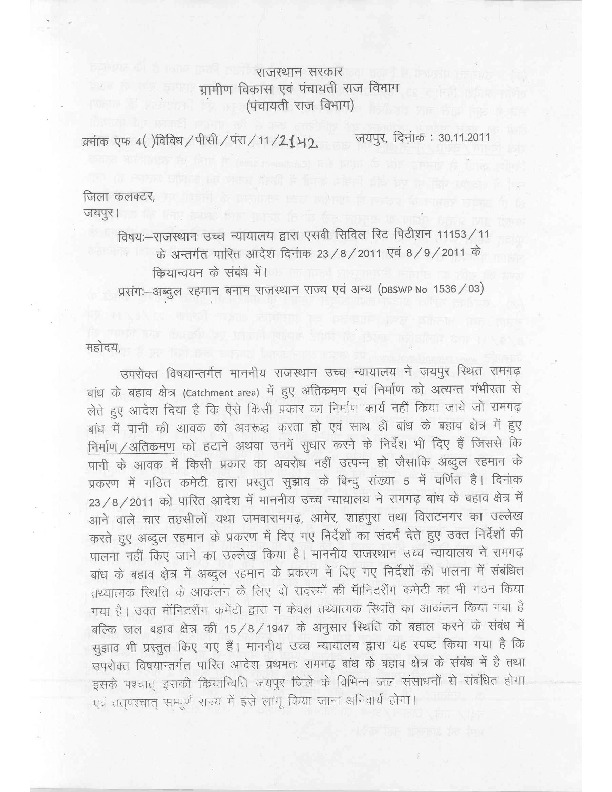 राजस्थान सरकार
ग्रामीण विकास एवं पंचायती राज विभाग
(पंचायती राज विभाग)
क्रमांक एफ 4( )विविध/पीसी/पंरा/11/2142 जयपुर, दिनांक : 30.11.2011
जिला कलक्टर,
जयपुर।
विषयः–राजस्थान उच्च न्यायालय द्वारा एसबी सिविल रिट पिटीशन 11153/11
के अन्तर्गत पारित आदेश दिनांक 23/8/2011 एवं 8/9/2011 के
कियान्वयन के संबंध में।
प्रसंगः–अब्दुल रहमान बनाम राजस्थान राज्य एवं अन्य (DBSWP No 1536/03)
महोदय,
उपरोक्त विषयान्तर्गत माननीय राजस्थान उच्च न्यायालय ने जयपुर स्थित रामगढ़
बांध के बहाव क्षेत्र (Catchment area) में हुए अतिकमण एवं निर्माण को अत्यन्त गंभीरता से
लेते हुए आदेश दिया है कि ऐसे किसी प्रकार का निर्माण कार्य नहीं किया जाये जो रामगढ़
बांध में पानी की आवक को अवरूद्ध करता हो एवं साथ ही बांध के बहाव क्षेत्र में हुए
निर्माण/अतिकमण को हटाने अथवा उनमें सुधार करने के निर्देश भी दिए हैं जिससे कि
पानी के आवक में किसी प्रकार का अवरोध नहीं उत्पन्न हो जैसाकि अब्दुल रहमान के
प्रकरण में गठित कमेटी द्वारा प्रस्तुत सुझाव के बिन्दु संख्या 5 में वर्णित है। दिनांक
23/8/2011 को पारित आदेश में माननीय उच्च न्यायालय ने रामगढ़ बांध के बहाव क्षेत्र में
आने वाले चार तहसीलों यथा जमवारामगढ़, आमेर, शाहपुरा तथा विराटनगर का उल्लेख
करते हुए अब्दुल रहमान के प्रकरण में दिए गए निर्देशों का संदर्भ देते हुए उक्त निर्देशों की
पालना नहीं किए जाने का उल्लेख किया है। माननीय राजस्थान उच्च न्यायालय ने रामगढ़
बांध के बहाव क्षेत्र में अब्दुल रहमान के प्रकरण में दिए गए निर्देशों की पालना में संबंधित
तथ्यात्मक स्थिति के आकलन के लिए दो सदस्यों की मॉनिटरींग कमेटी का भी गठन किया
गया है। उक्त मॉनिटरींग कमेटी द्वारा न केवल तथ्यात्मक स्थिति का आकलन किया गया है
बल्कि जल बहाव क्षेत्र की 15/8/1947 के अनुसार स्थिति को बहाल करने के संबंध में
सुझाव भी प्रस्तुत किए गए हैं। माननीय उच्च न्यायालय द्वारा यह स्पष्ट किया गया है कि
उपरोक्त विषयान्तर्गत पारित आदेश प्रथमतः रामगढ़ बांध के बहाव क्षेत्र के संबंध में है तथा
इसके पश्चात् इसकी कियान्विति जयपुर जिले के विभिन्न जल संसाधनों से संबंधित होगा
एवं ततपश्चात् सम्पूर्ण राज्य में इसे लागू किया जाना अनिवार्य होगा।